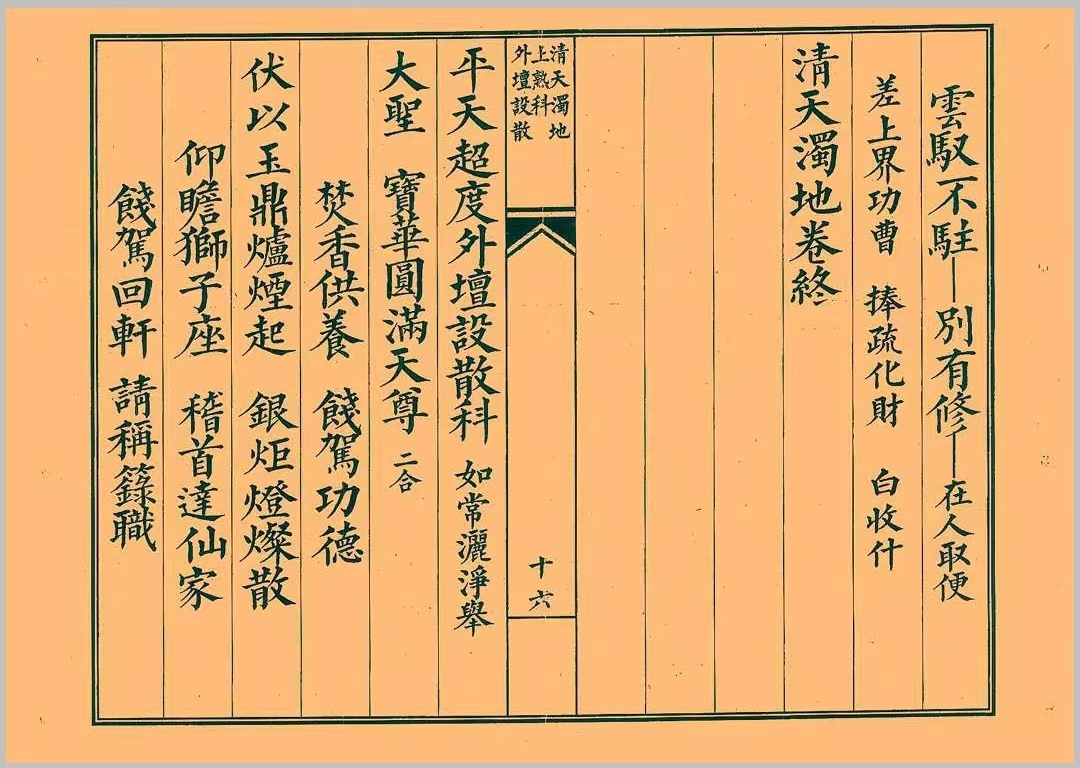 雲馭不駐—別有修—在人取便
差上界功曹 捧疏化財 白收什
清天濁地卷終
清天濁地
上熟科
外壇設散
十六
平天超度外壇設散科 如常灑淨舉
大聖 寶華圓滿天尊 二合
焚香供養 餞駕功德
伏以玉鼎爐煙起 銀炬燈燦散
仰瞻獅子座 稽首達仙家
餞駕回軒 請稱籙職